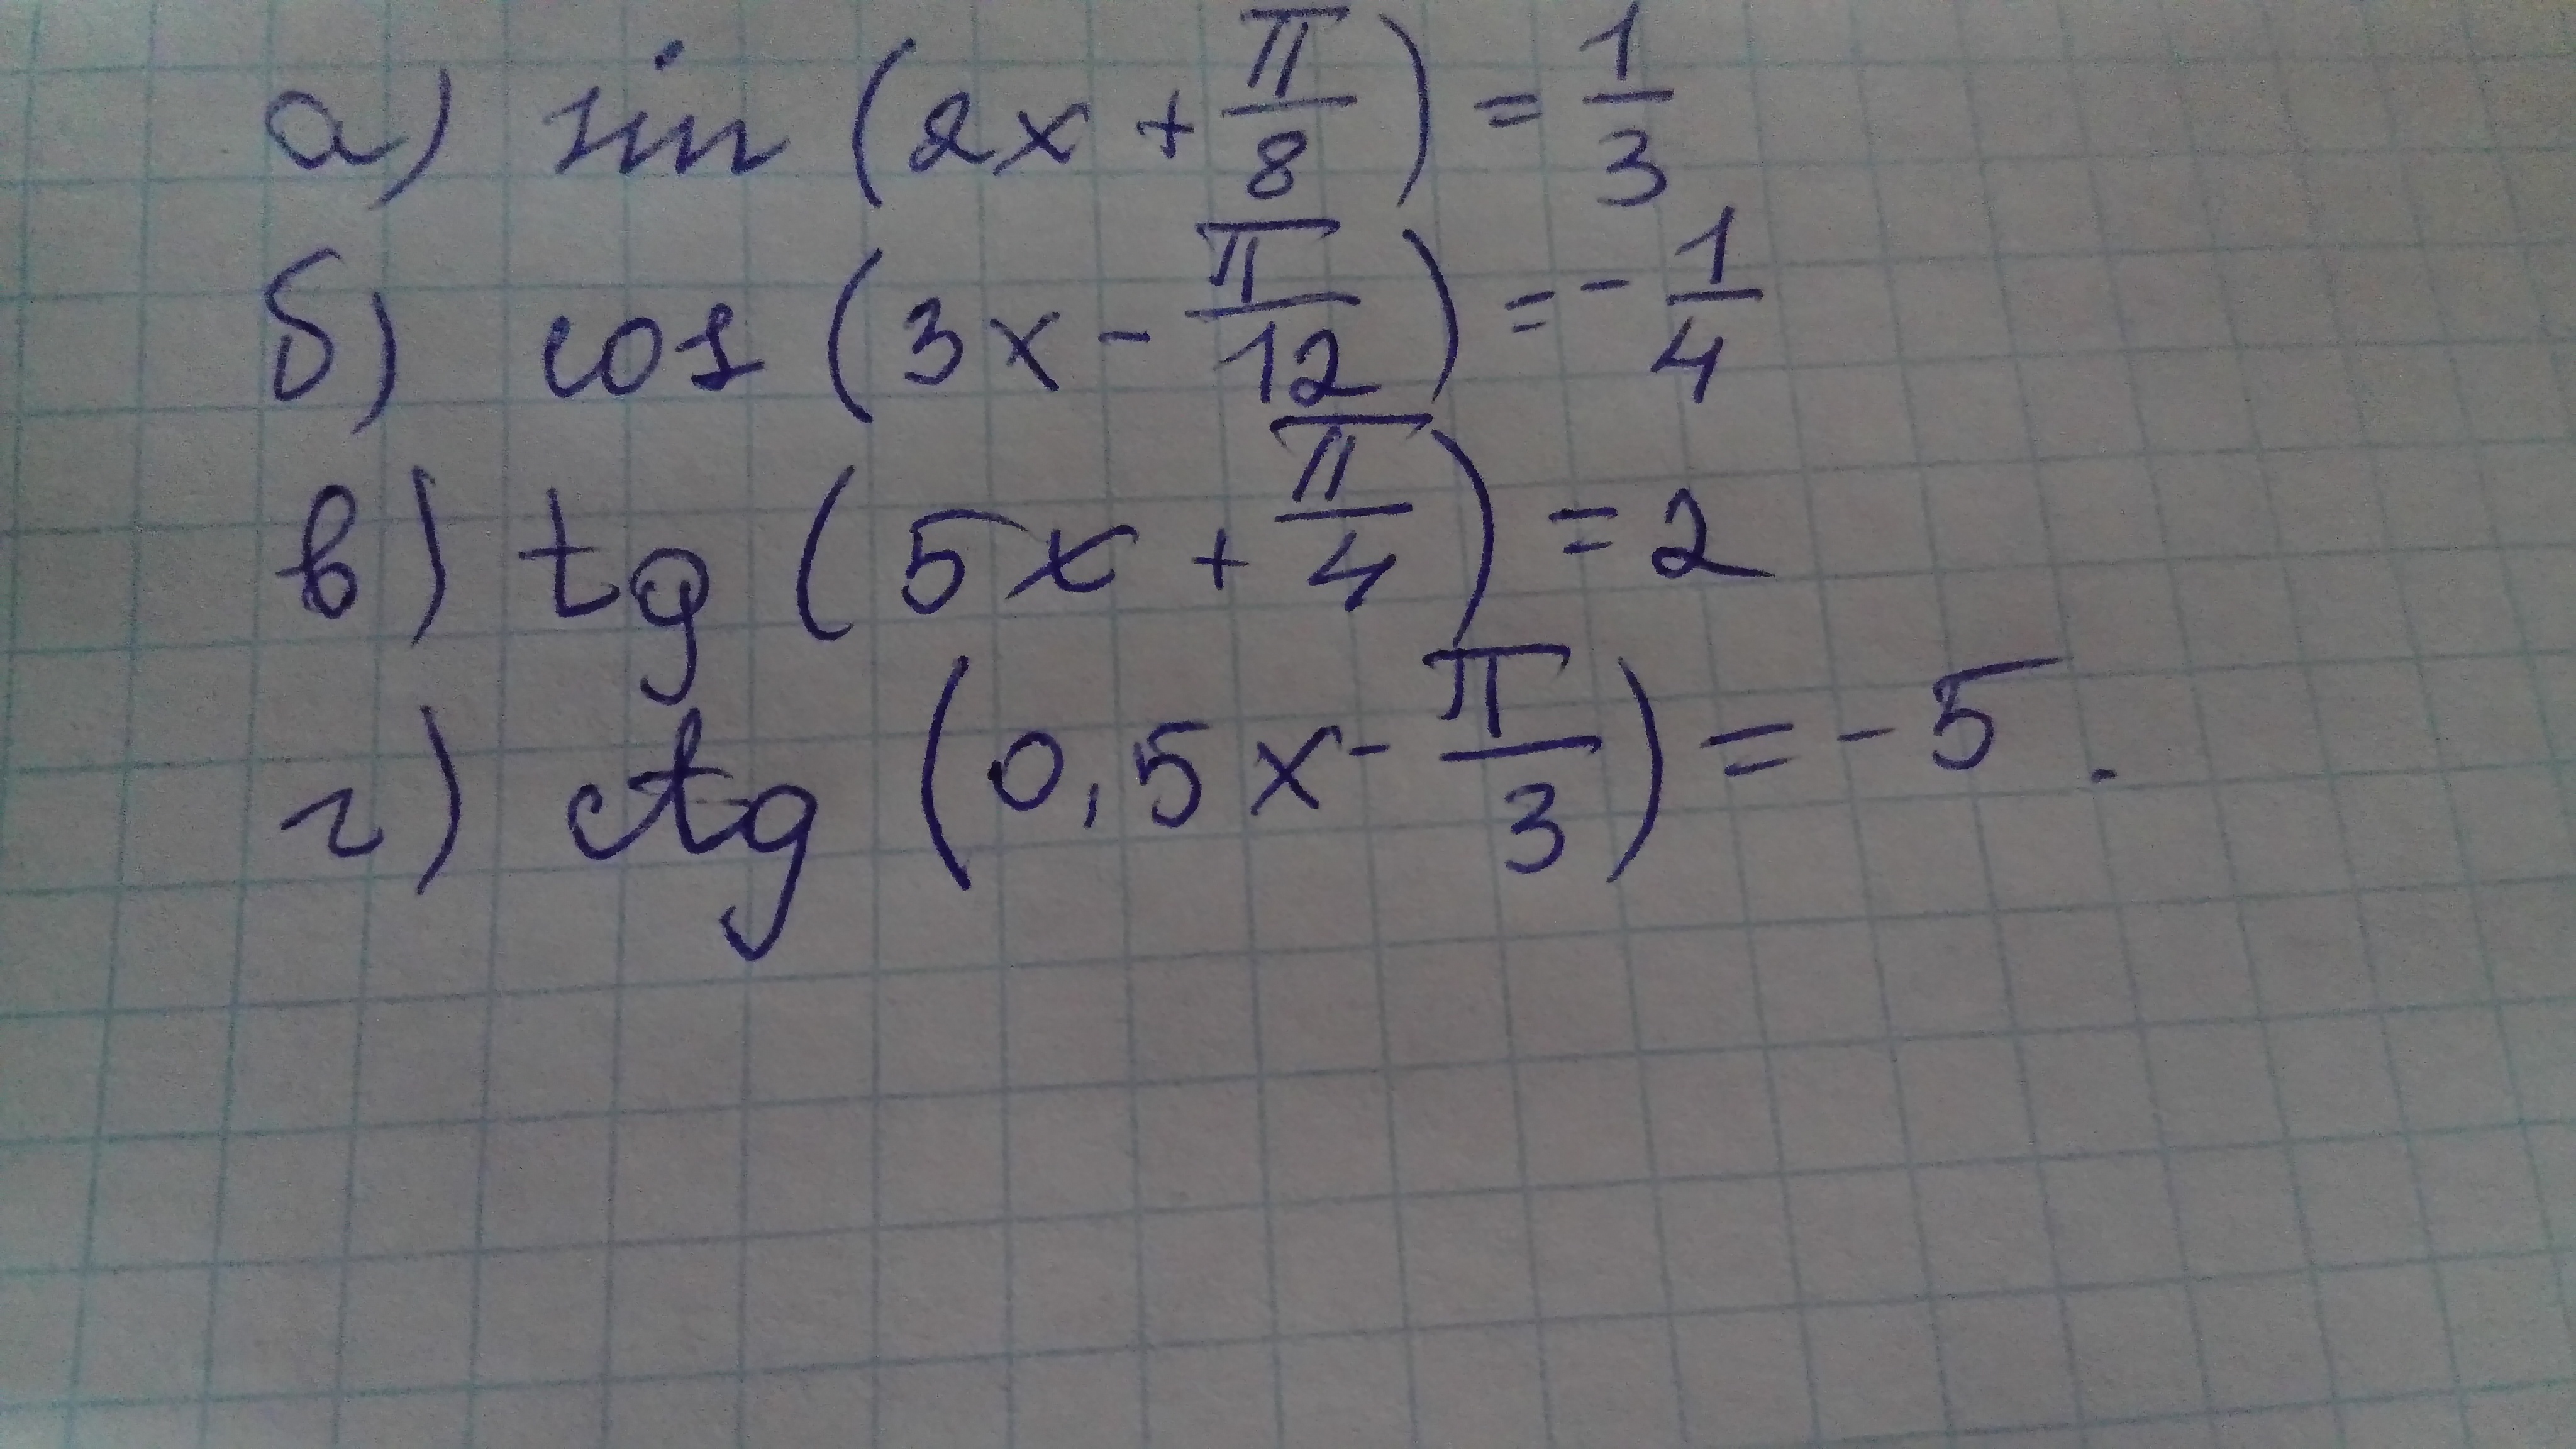 а) sin (2x + π/8) = 1/3
б) cos (3x - π/12) = - 1/4
в) tg (5x + π/4) = 2
г) ctg (0,5x - π/3) = - 5.